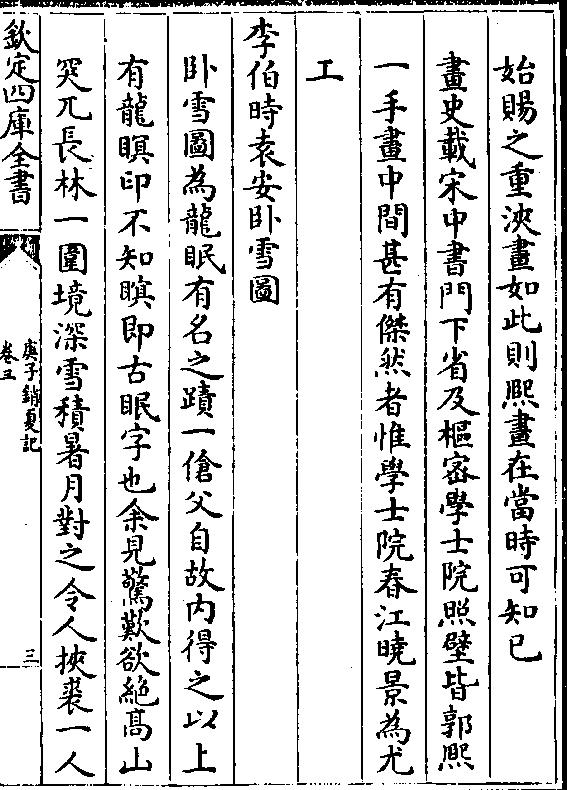 始賜之重浹畫如此則熙畫在當時可知已
畫史載宋中書門下省及樞密學士院照壁皆郭熙
一手畫中間甚有傑然者惟學士院春江曉景為尤
工
李伯時袁安卧雪圖
卧雪圖為龍眠有名之蹟一傖父自故内得之以上
有龍瞑印不知瞑即古眠字也余見驚歎欲絶高山
突兀長林一圍境深雪積暑月對之令人挾裘一人
欽定四庫全書
庚子銷夏記
卷三
三